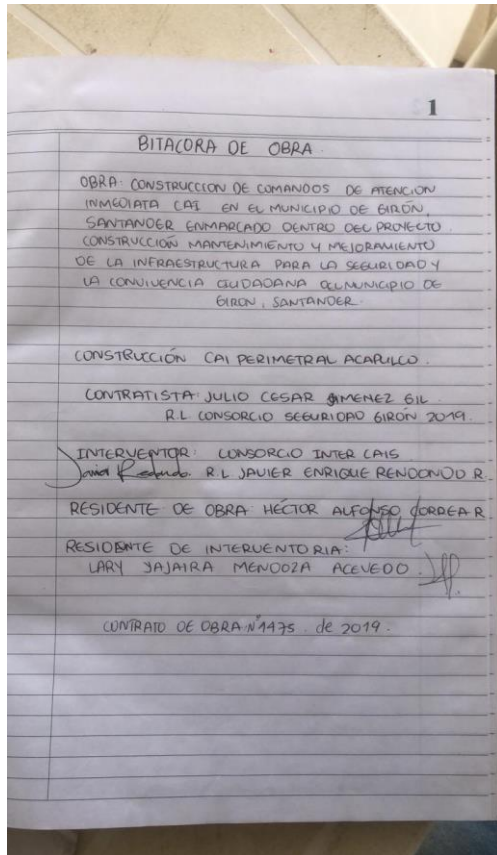 1
BITACORA DE OBRA.
OBRA: CONSTRUCCION DE COMANDOS DE ATENCION
INMEDIATA CAI EN EL MUNICIPIO DE GIRÓN,
SANTANDER ENMARCADO DENTRO DEL PROYECTO.
CONSTRUCCIÓN MANTENIMIENTO Y MEJORAMIENTO
DE LA INFRAESTRUCTURA PARA LA SEGURIDAD Y
LA CONVIVENCIA CIUDADANA DEL MUNICIPIO DE
GIRON, SANTANDER.
CONSTRUCCIÓN CAI PERIMETRAL ACAPULCO.
CONTRATISTA: JULIO CESAR JIMENEZ GIL.
R.L CONSORCIO SEGURIDAD GIRÓN 2019.
INTERVENTOR: CONSORCIO INTER CAIS
R.L JAVIER ENRIQUE R.
RESIDENTE DE OBRA: HÉCTOR ALFONSO CORREA R
RESIDENTE DE INTERVENTORIA:
LARY YAJAIRA MENDOZA ACEVEDO.
CONTRATO DE OBRA Nº1475. de 2019.